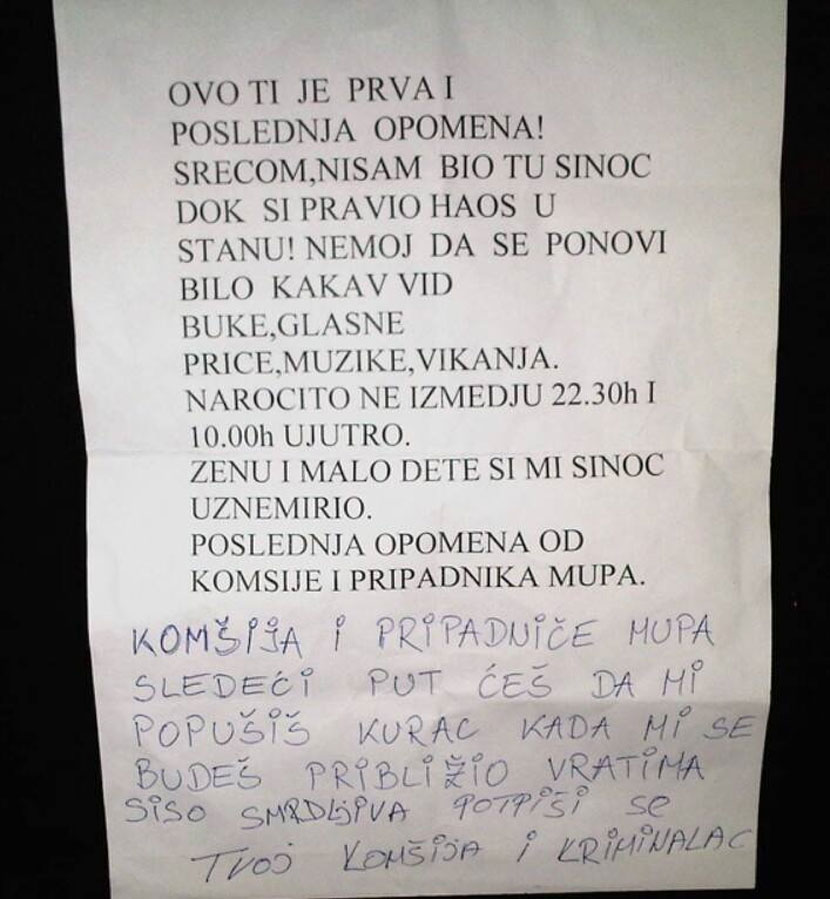 OVO TI JE PRVA I
POSLEDNJA OPOMENA!
SRECOM,NISAM BIO TU SINOC
DOK SI PRAVIO HAOS U
STANU! NEMOJ DA SE PONOVI
BILO KAKAV VID
BUKE,GLASNE
PRICE,MUZIKE,VIKANJA.
NAROCITO NE IZMEDJU 22.30h I
10.00h UJUTRO.
ZENU I MALO DETE SI MI SINOC
UZNEMIRIO.
POSLEDNJA OPOMENA OD
KOMSIJE I PRIPADNIKA MUPA.
KOMŠIJA I PRIPADNIČE MUPA
SLEDEĆI PUT ĆEŠ DA MI
POPUŠIŠ KURAC KADA MI SE
BUDEŠ PRIBLIŽIO VRATIMA
SISO SMRDLJIVA POTPIŠI SE
TVOJ KOMŠIJA I KRIMINALAC